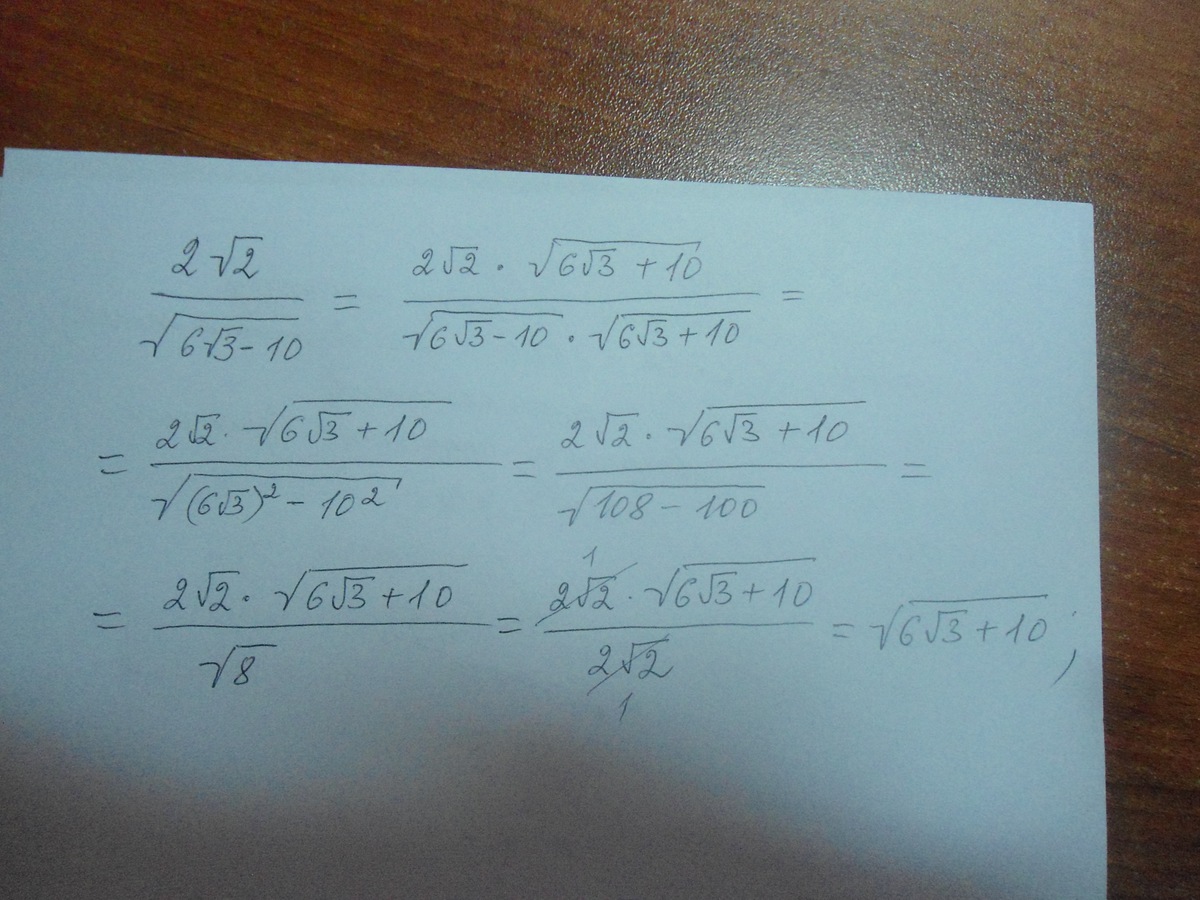 2√2 / √(6√3 - 10) = 2√2 · √(6√3 + 10) / √(6√3 - 10) · √(6√3 + 10) =
= 2√2 · √(6√3 + 10) / √((6√3)² - 10²) = 2√2 · √(6√3 + 10) / √(108 - 100) =
= 2√2 · √(6√3 + 10) / √8 = 1 2√2 · √(6√3 + 10) / 2√2 1 = √(6√3 + 10) ;